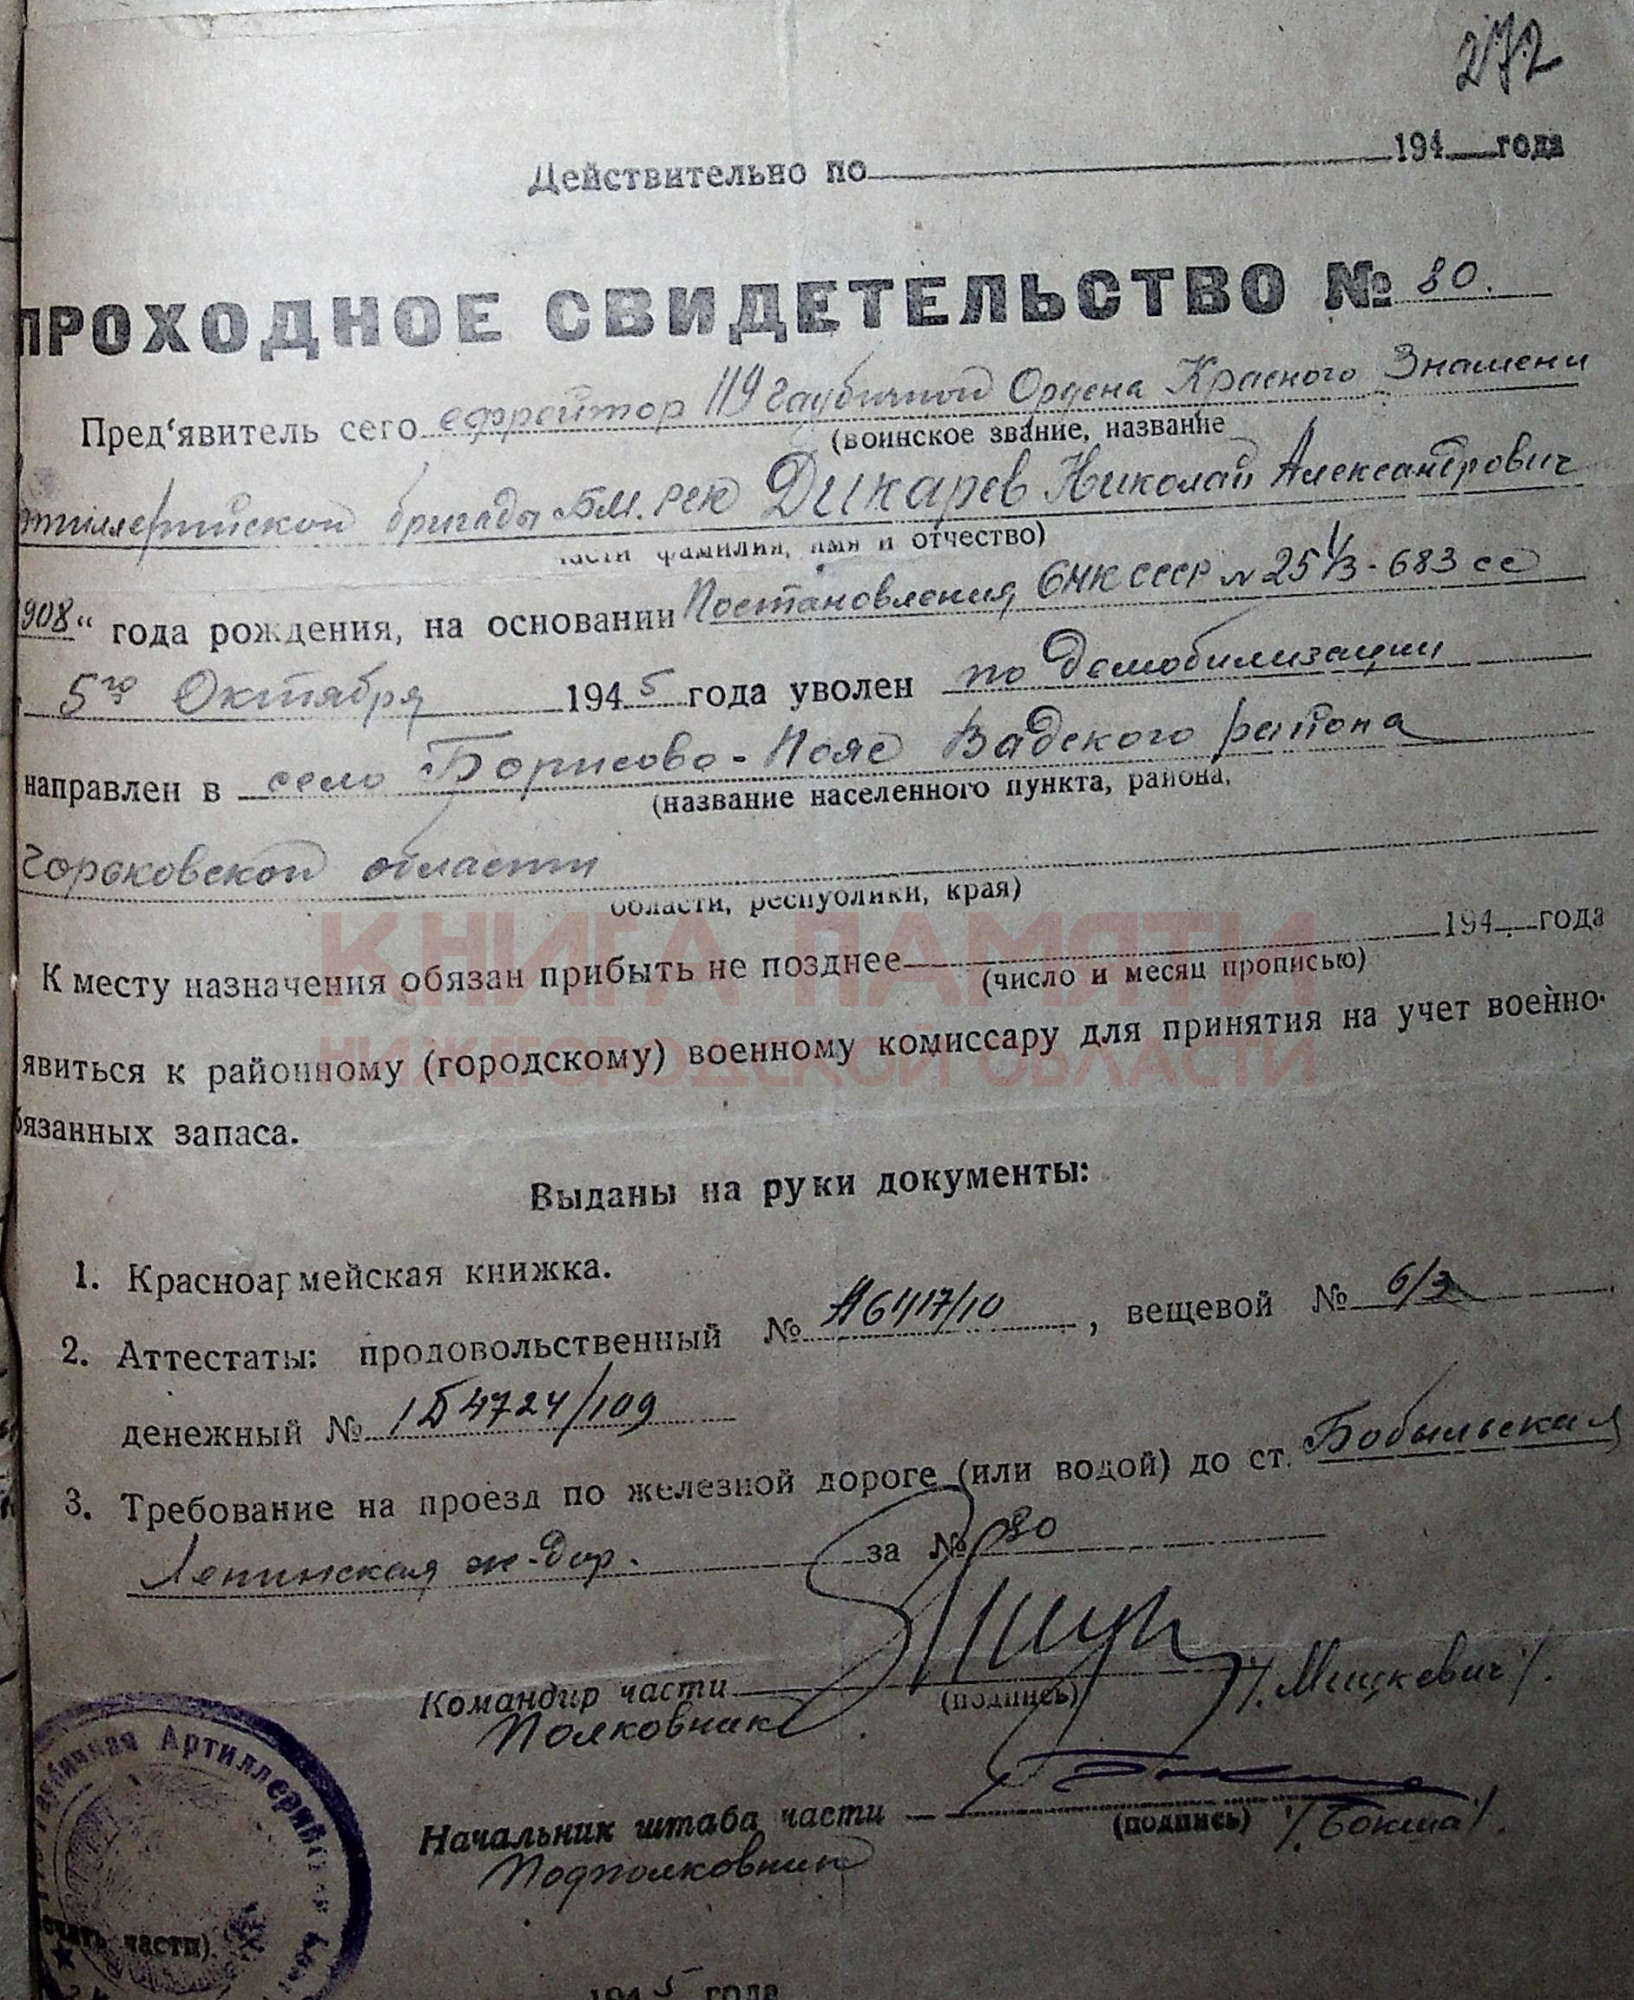 272
Действительно по 194 года
ПРОХОДНОЕ СВИДЕТЕЛЬСТВО № 80.
Пред‘явитель сего ефрейтор 119 гаубичной Ордена Красного Знамени
(воинское звание, название
ртиллерийской бригады БМ. РГК Дикарев Николай Александрович
части фамилия, имя и отчество)
908“ года рождения, на основании Постановления СНК СССР № 25 1/3 - 683 сс
5го Октября 1945 года уволен по демобилизации
направлен в село Борисово - Поле Вадского района
(название населенного пункта, района,
Горьковской области
области, республики, края)
КНИГА ПАМЯТИ
К месту назначения обязан прибыть не позднее 194 года
(число и месяц прописью)
НИЖЕГОРОДСКОЙ ОБЛАСТИ
явиться к районному (городскому) военному комиссару для принятия на учет военно-
бязанных запаса.
Выданы на руки документы:
1. Красноармейская книжка.
2. Аттестаты: продовольственный № , вещевой № 6/3
денежный № 4724/109
3. Требование на проезд по железной дороге (или водой) до ст. Бобыльская
Ленинская ж-дор. за № 80
Командир части (подпись) /Мицкевич/.
Полковник
Начальник штаба части (подпись) /Бокша/.
Подполковник
Гаубичная Артиллерийская
части).
1945 года